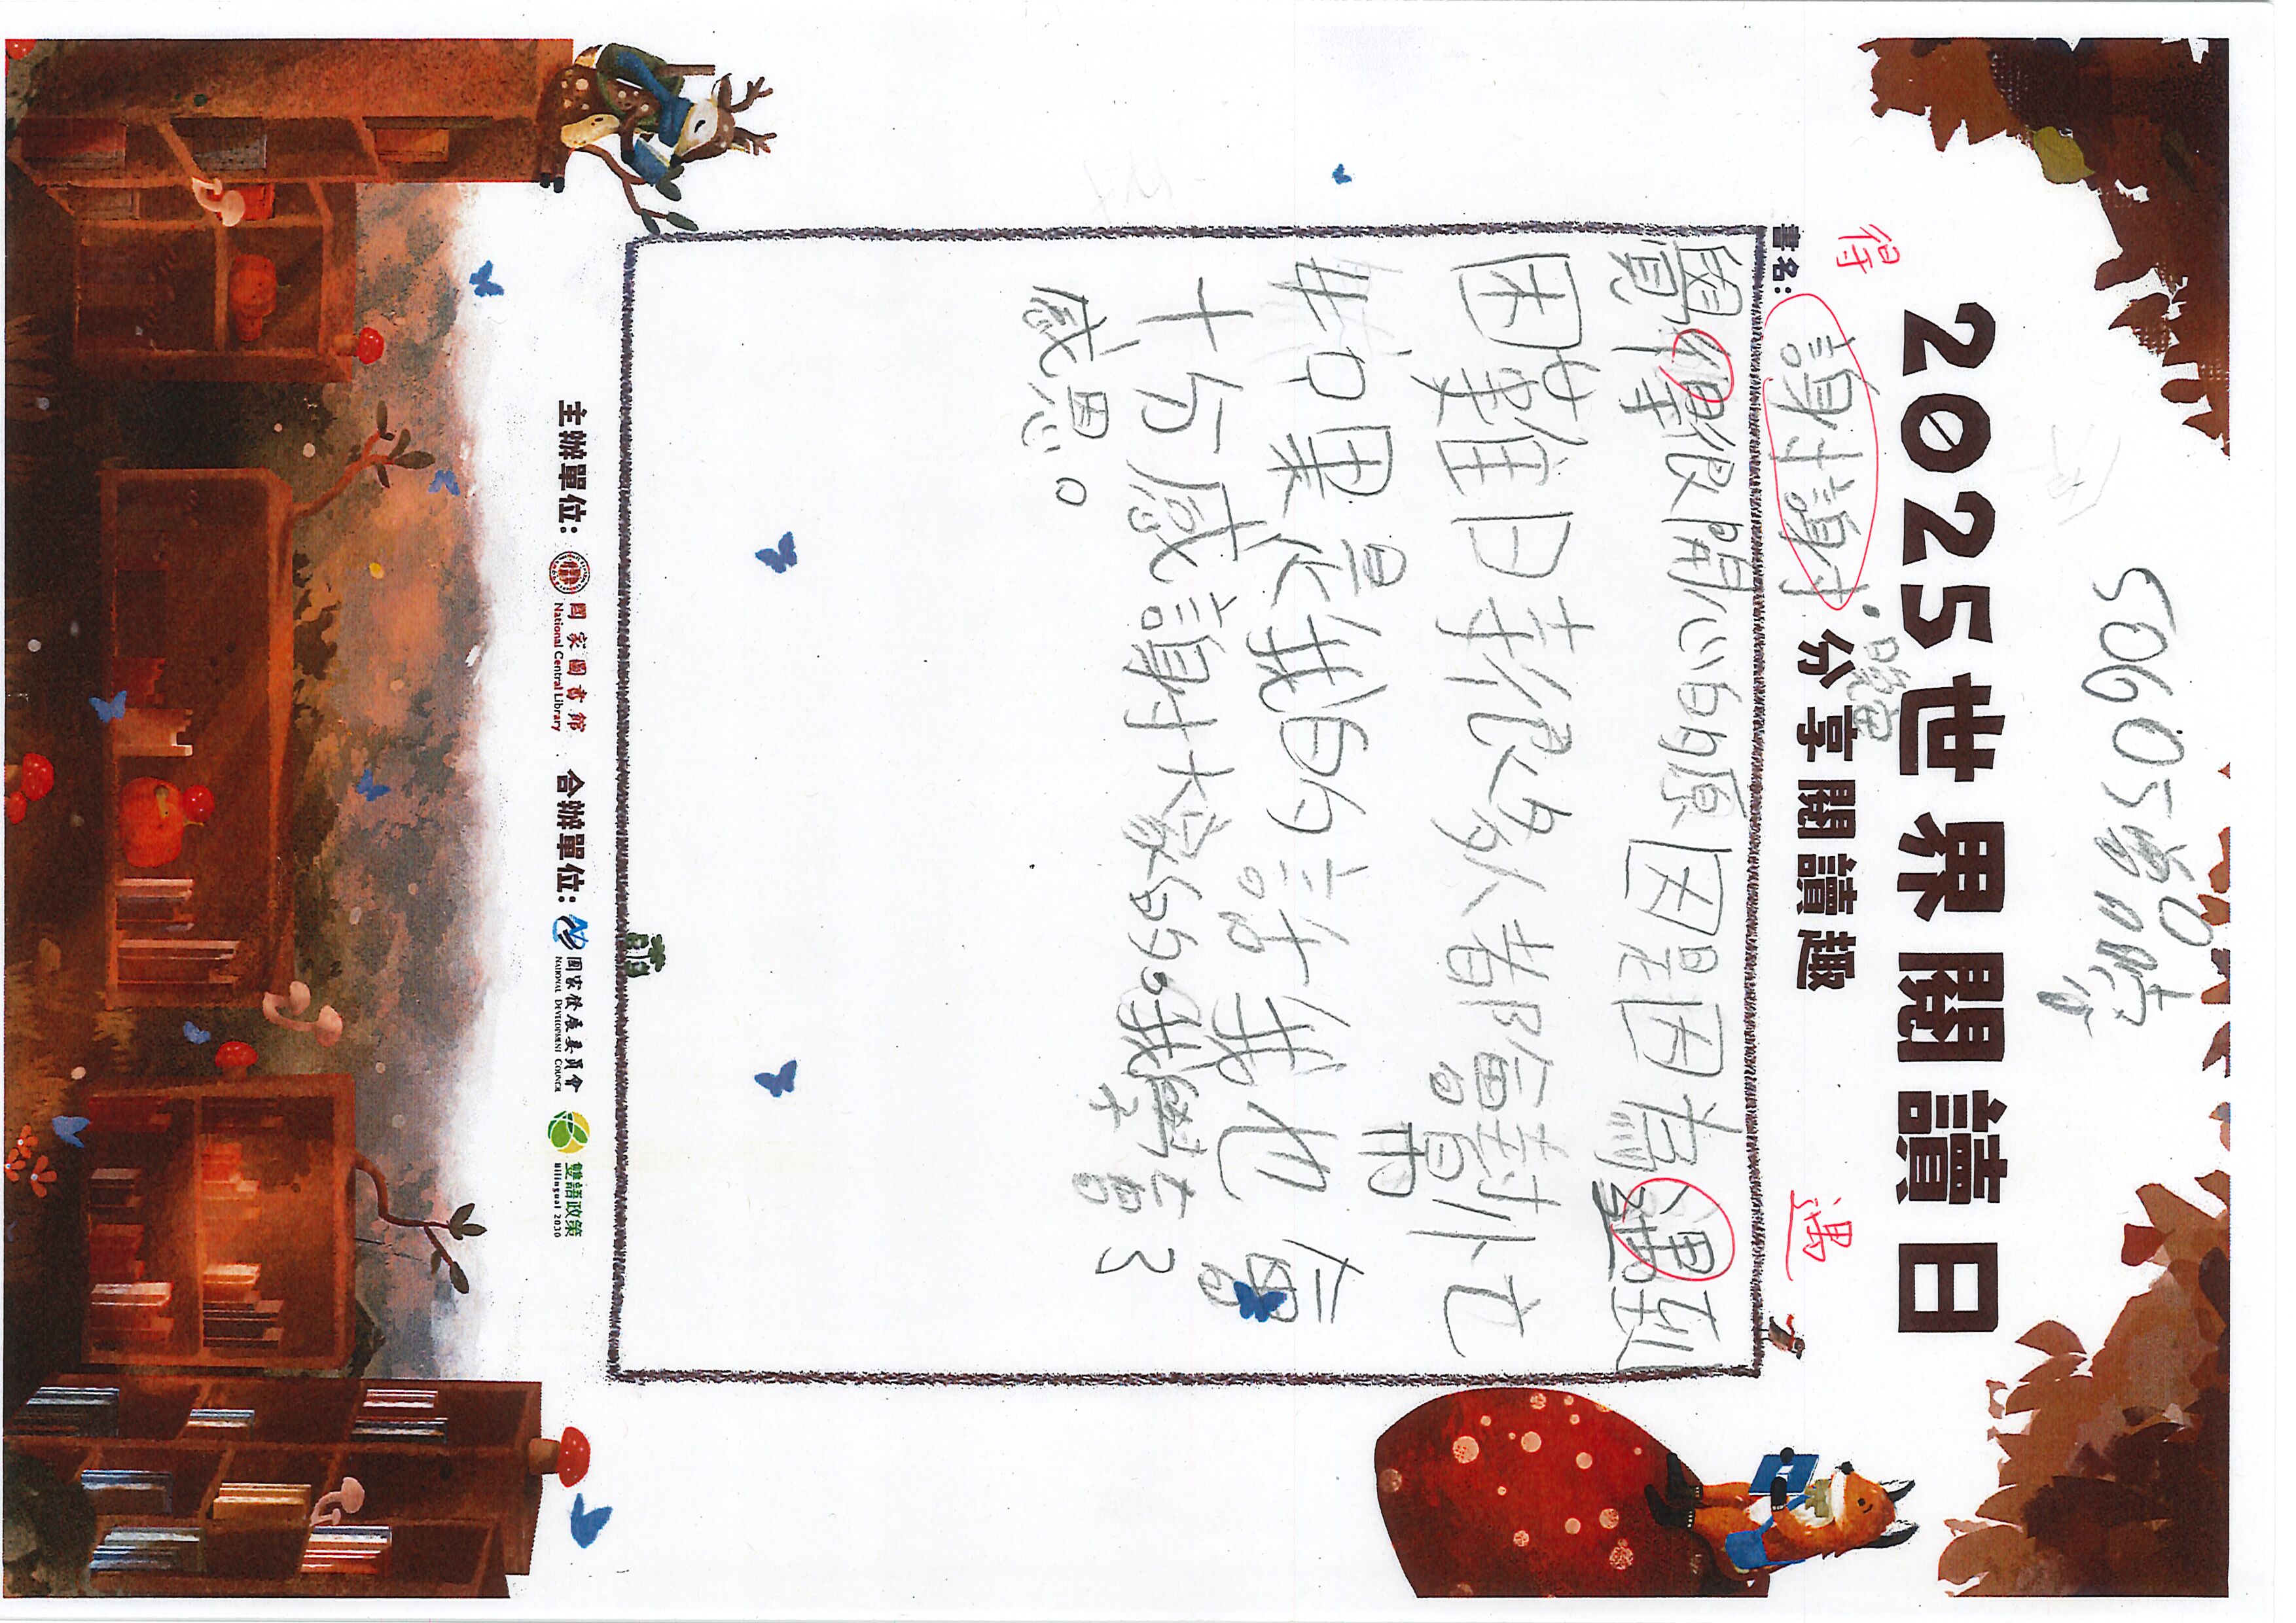 50605
2025世界閱讀日
分享閱讀趣
書名: 謝謝
得
遇
覺得很開心的原因是因為遇到
困難時很多人都會幫忙
如果是我的話我也會
十分感謝大家的我學會了
感恩。
主辦單位: 國家圖書館 National Central Library 合辦單位: 國家發展委員會 NATIONAL DEVELOPMENT COUNCIL 雙語政策 Bilingual 2030